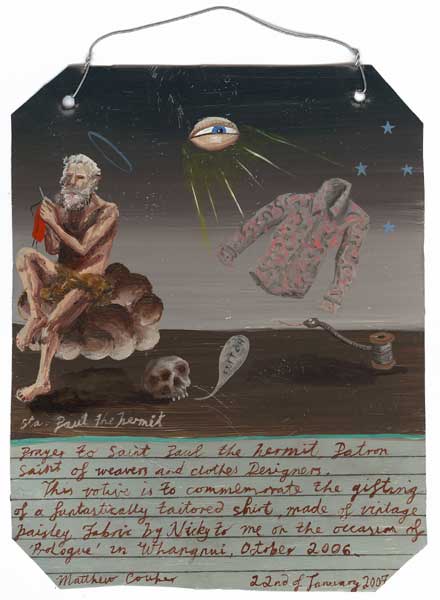 Sta. Paul the hermit
Prayer to Saint Paul the hermit, Patron
Saint of weavers and clothes Designers.
This votive is to commemorate the gifting
of a fantastically tailored shirt, made of vintage
paisley Fabric by Nicky to me on the occasion of
'Prologue' in Whangnui, October 2006.
Matthew Couper 22nd of January 2007